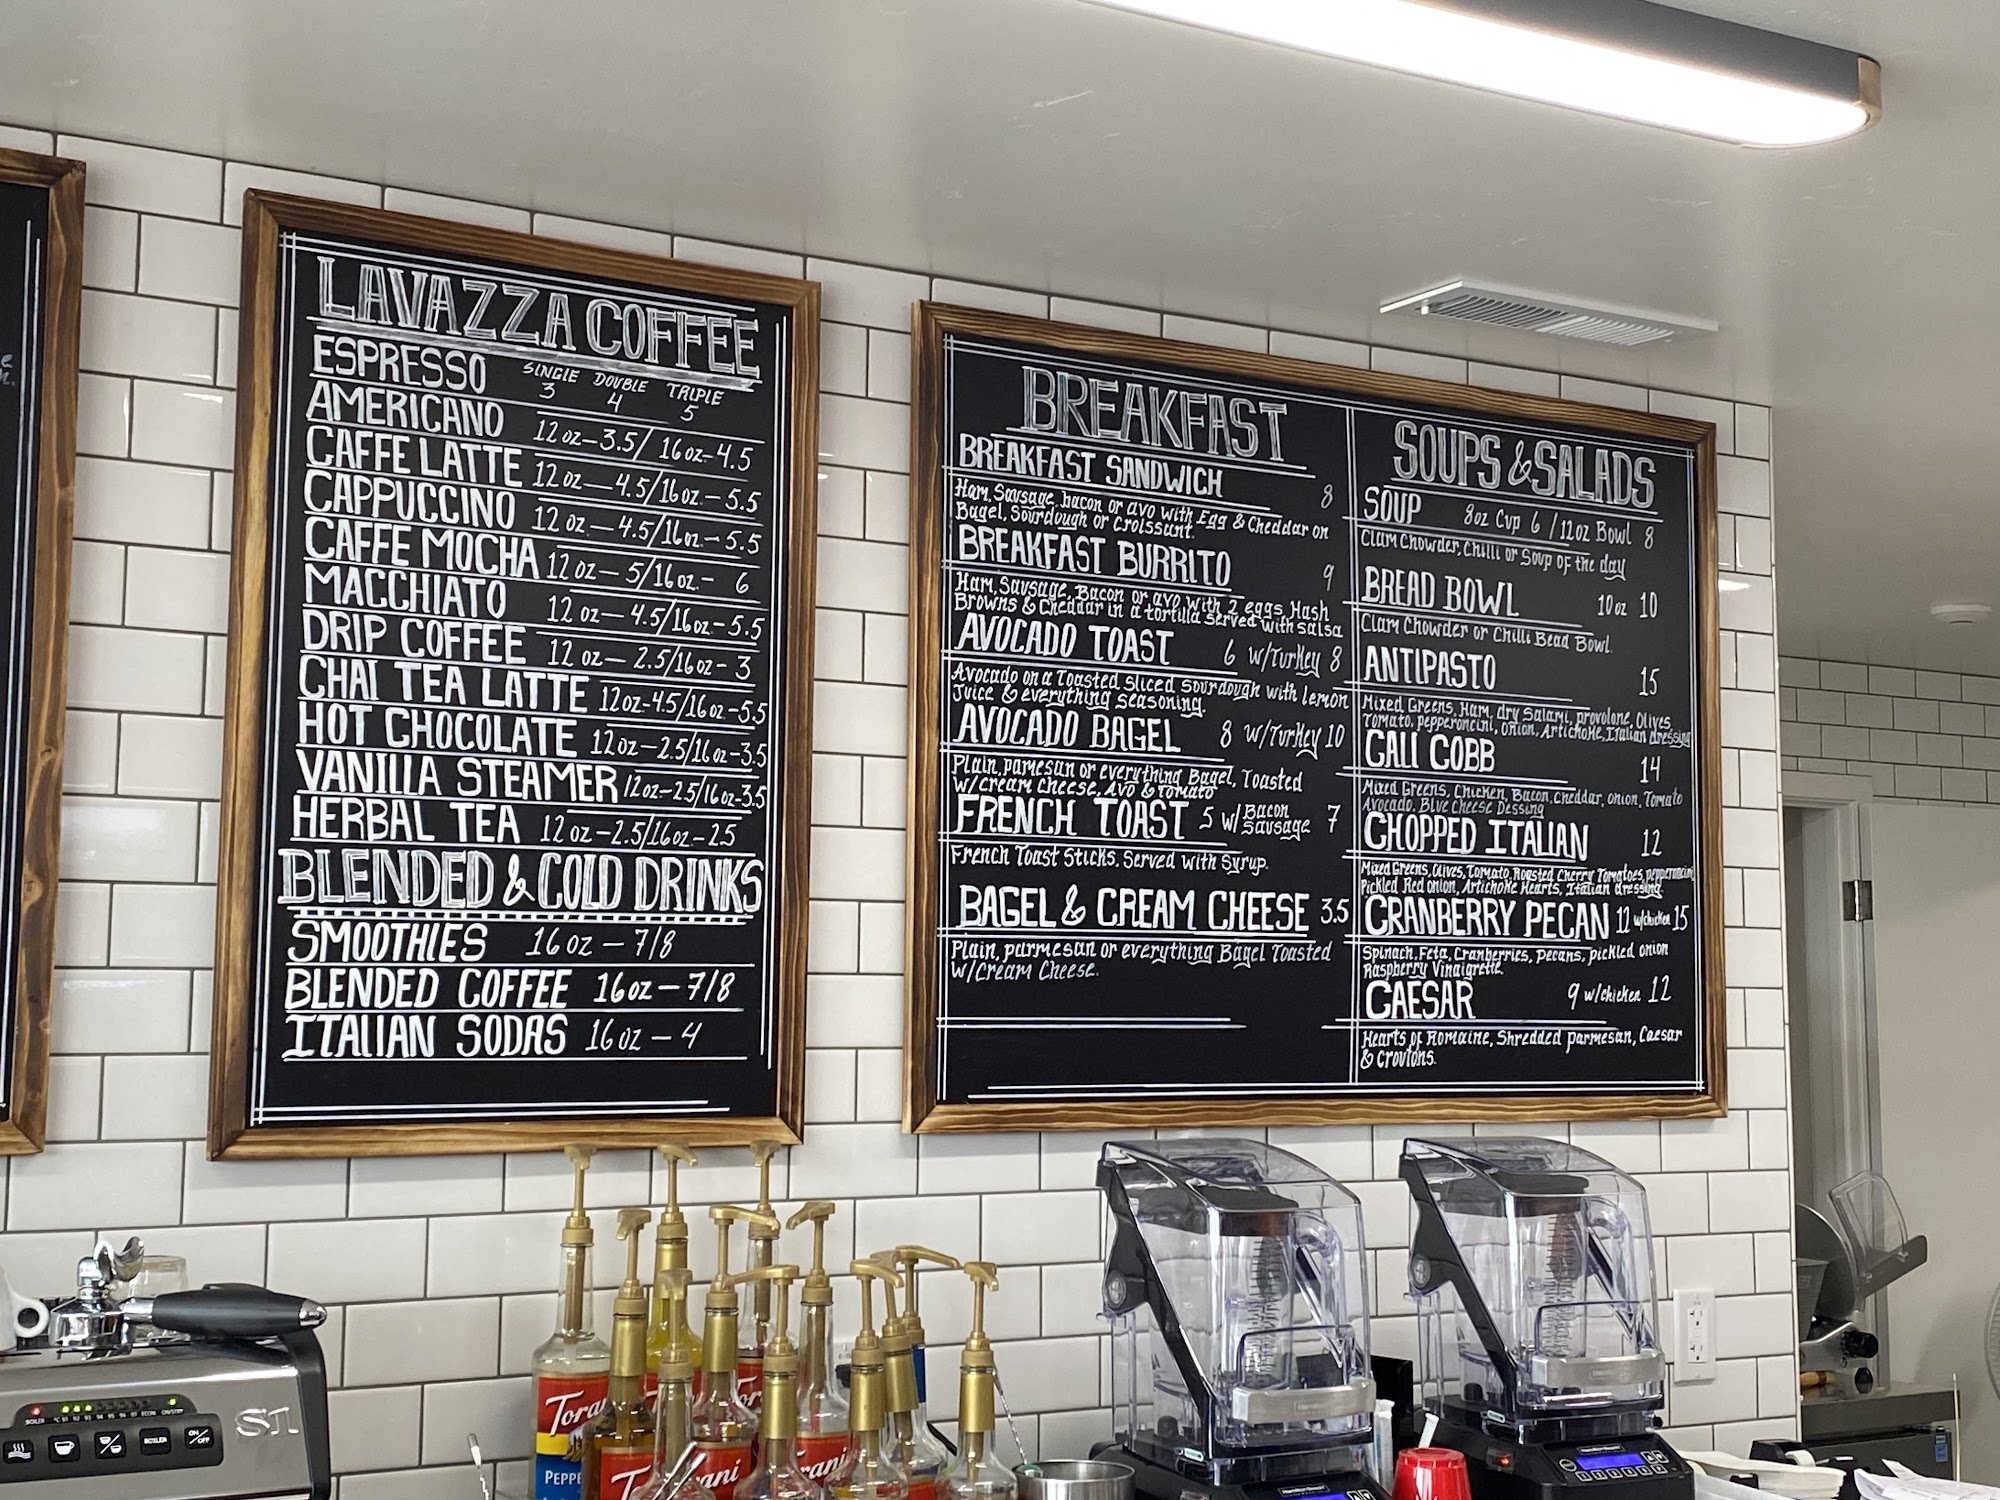 LAVAZZA COFFEE
ESPRESSO SINGLE 3 DOUBLE 4 TRIPLE 5
AMERICANO 12 oz-3.5/ 16 oz-4.5
CAFFE LATTE 12 oz-4.5/16 oz-5.5
CAPPUCCINO 12 oz-4.5/16oz-5.5
CAFFE MOCHA 12 oz-5/16oz-6
MACCHIATO 12 oz-4.5/16oz-5.5
DRIP COFFEE 12 oz-2.5/16oz-3
CHAI TEA LATTE 12oz-4.5/16oz-5.5
HOT CHOCOLATE 12oz-2.5/16oz-3.5
VANILLA STEAMER 12oz-2.5/16oz-3.5
HERBAL TEA 12oz-2.5/16oz-2.5
BLENDED & COLD DRINKS
SMOOTHIES 16 oz-7/8
BLENDED COFFEE 16oz-7/8
ITALIAN SODAS 16 oz-4
BREAKFAST
BREAKFAST SANDWICH 8
Ham, Sausage, bacon or avo with Egg & Cheddar on
Bagel, Sourdough or Croissant.
BREAKFAST BURRITO 9
Ham, Sausage, Bacon or avo with 2 eggs, Hash
Browns & Cheddar in a tortilla served with salsa
AVOCADO TOAST 6 w/Turkey 8
Avocado on a Toasted sliced sourdough with lemon
Juice & everything seasoning.
AVOCADO BAGEL 8 w/Turkey 10
Plain, parmesan or everything Bagel, Toasted
w/cream cheese, Avo & Tomato
FRENCH TOAST 5 w/Bacon Sausage 7
French Toast Sticks, Served with Syrup.
BAGEL & CREAM CHEESE 3.5
Plain, parmesan or everything Bagel Toasted
w/Cream Cheese.
SOUPS & SALADS
SOUP 8oz Cup 6 / 12oz Bowl 8
Clam Chowder, Chilli or Soup of the day
BREAD BOWL 10oz 10
Clam Chowder or Chilli Bead Bowl.
ANTIPASTO 15
Mixed Greens, Ham, dry Salami, provolone, Olives,
Tomato, pepperoncini, onion, Artichoke, Italian dressing
CALI COBB 14
Mixed Greens, Chicken, Bacon, cheddar, onion, Tomato
Avocado, Blue Cheese Dessing
CHOPPED ITALIAN 12
Mixed Greens, Olives, Tomato, Roasted Cherry Tomatoes, pepperoncini
Pickled Red onion, Artichoke Hearts, Italian dressing.
CRANBERRY PECAN 12 w/chicken 15
Spinach, Feta, Cranberries, Pecans, pickled onion
Raspberry Vinaigrette.
CAESAR 9 w/chicken 12
Hearts of Romaine, Shredded parmesan, Caesar
& Croutons.
Torani
PEPPE
Torani
S1
BOILER
ON/OFF